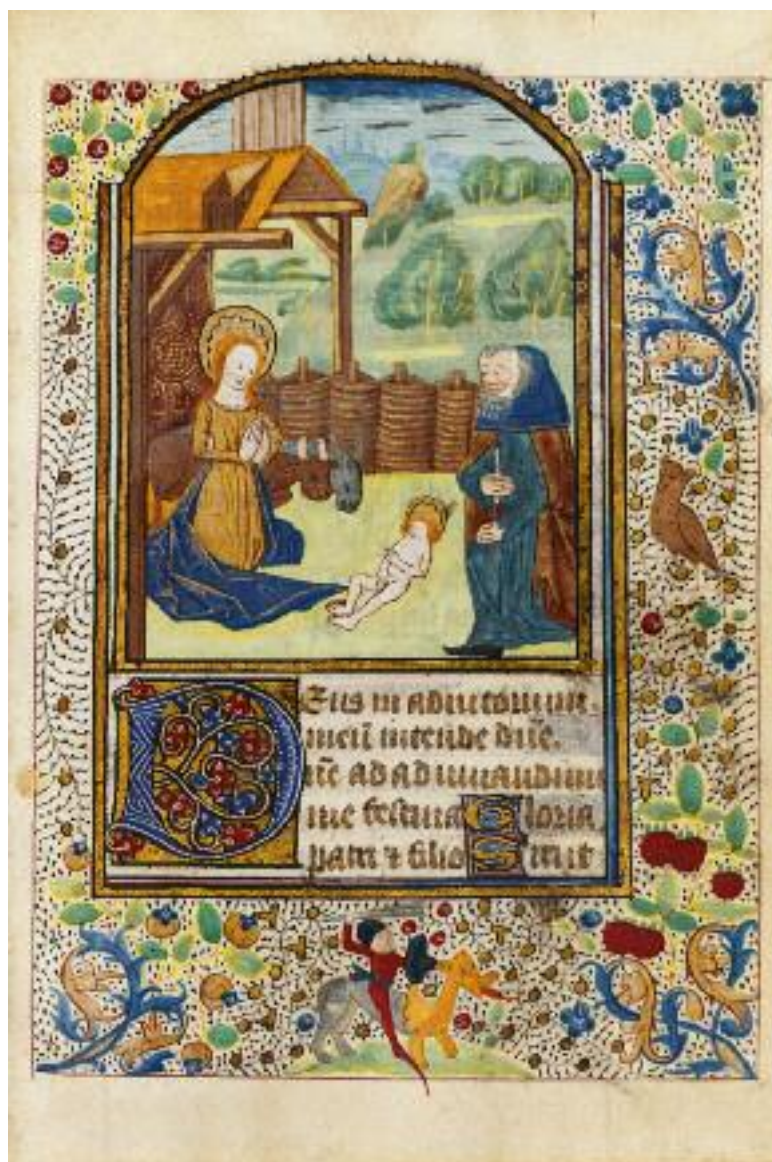 Deus in adiutorium
meū intende dn̄e.
ne ad adiuuandum
me festina Gloria
patri ⁊ filio Sicut